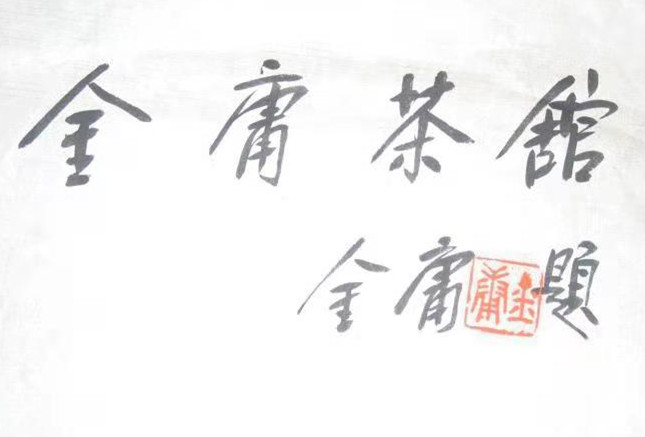 金庸茶舘
金庸題
金庸